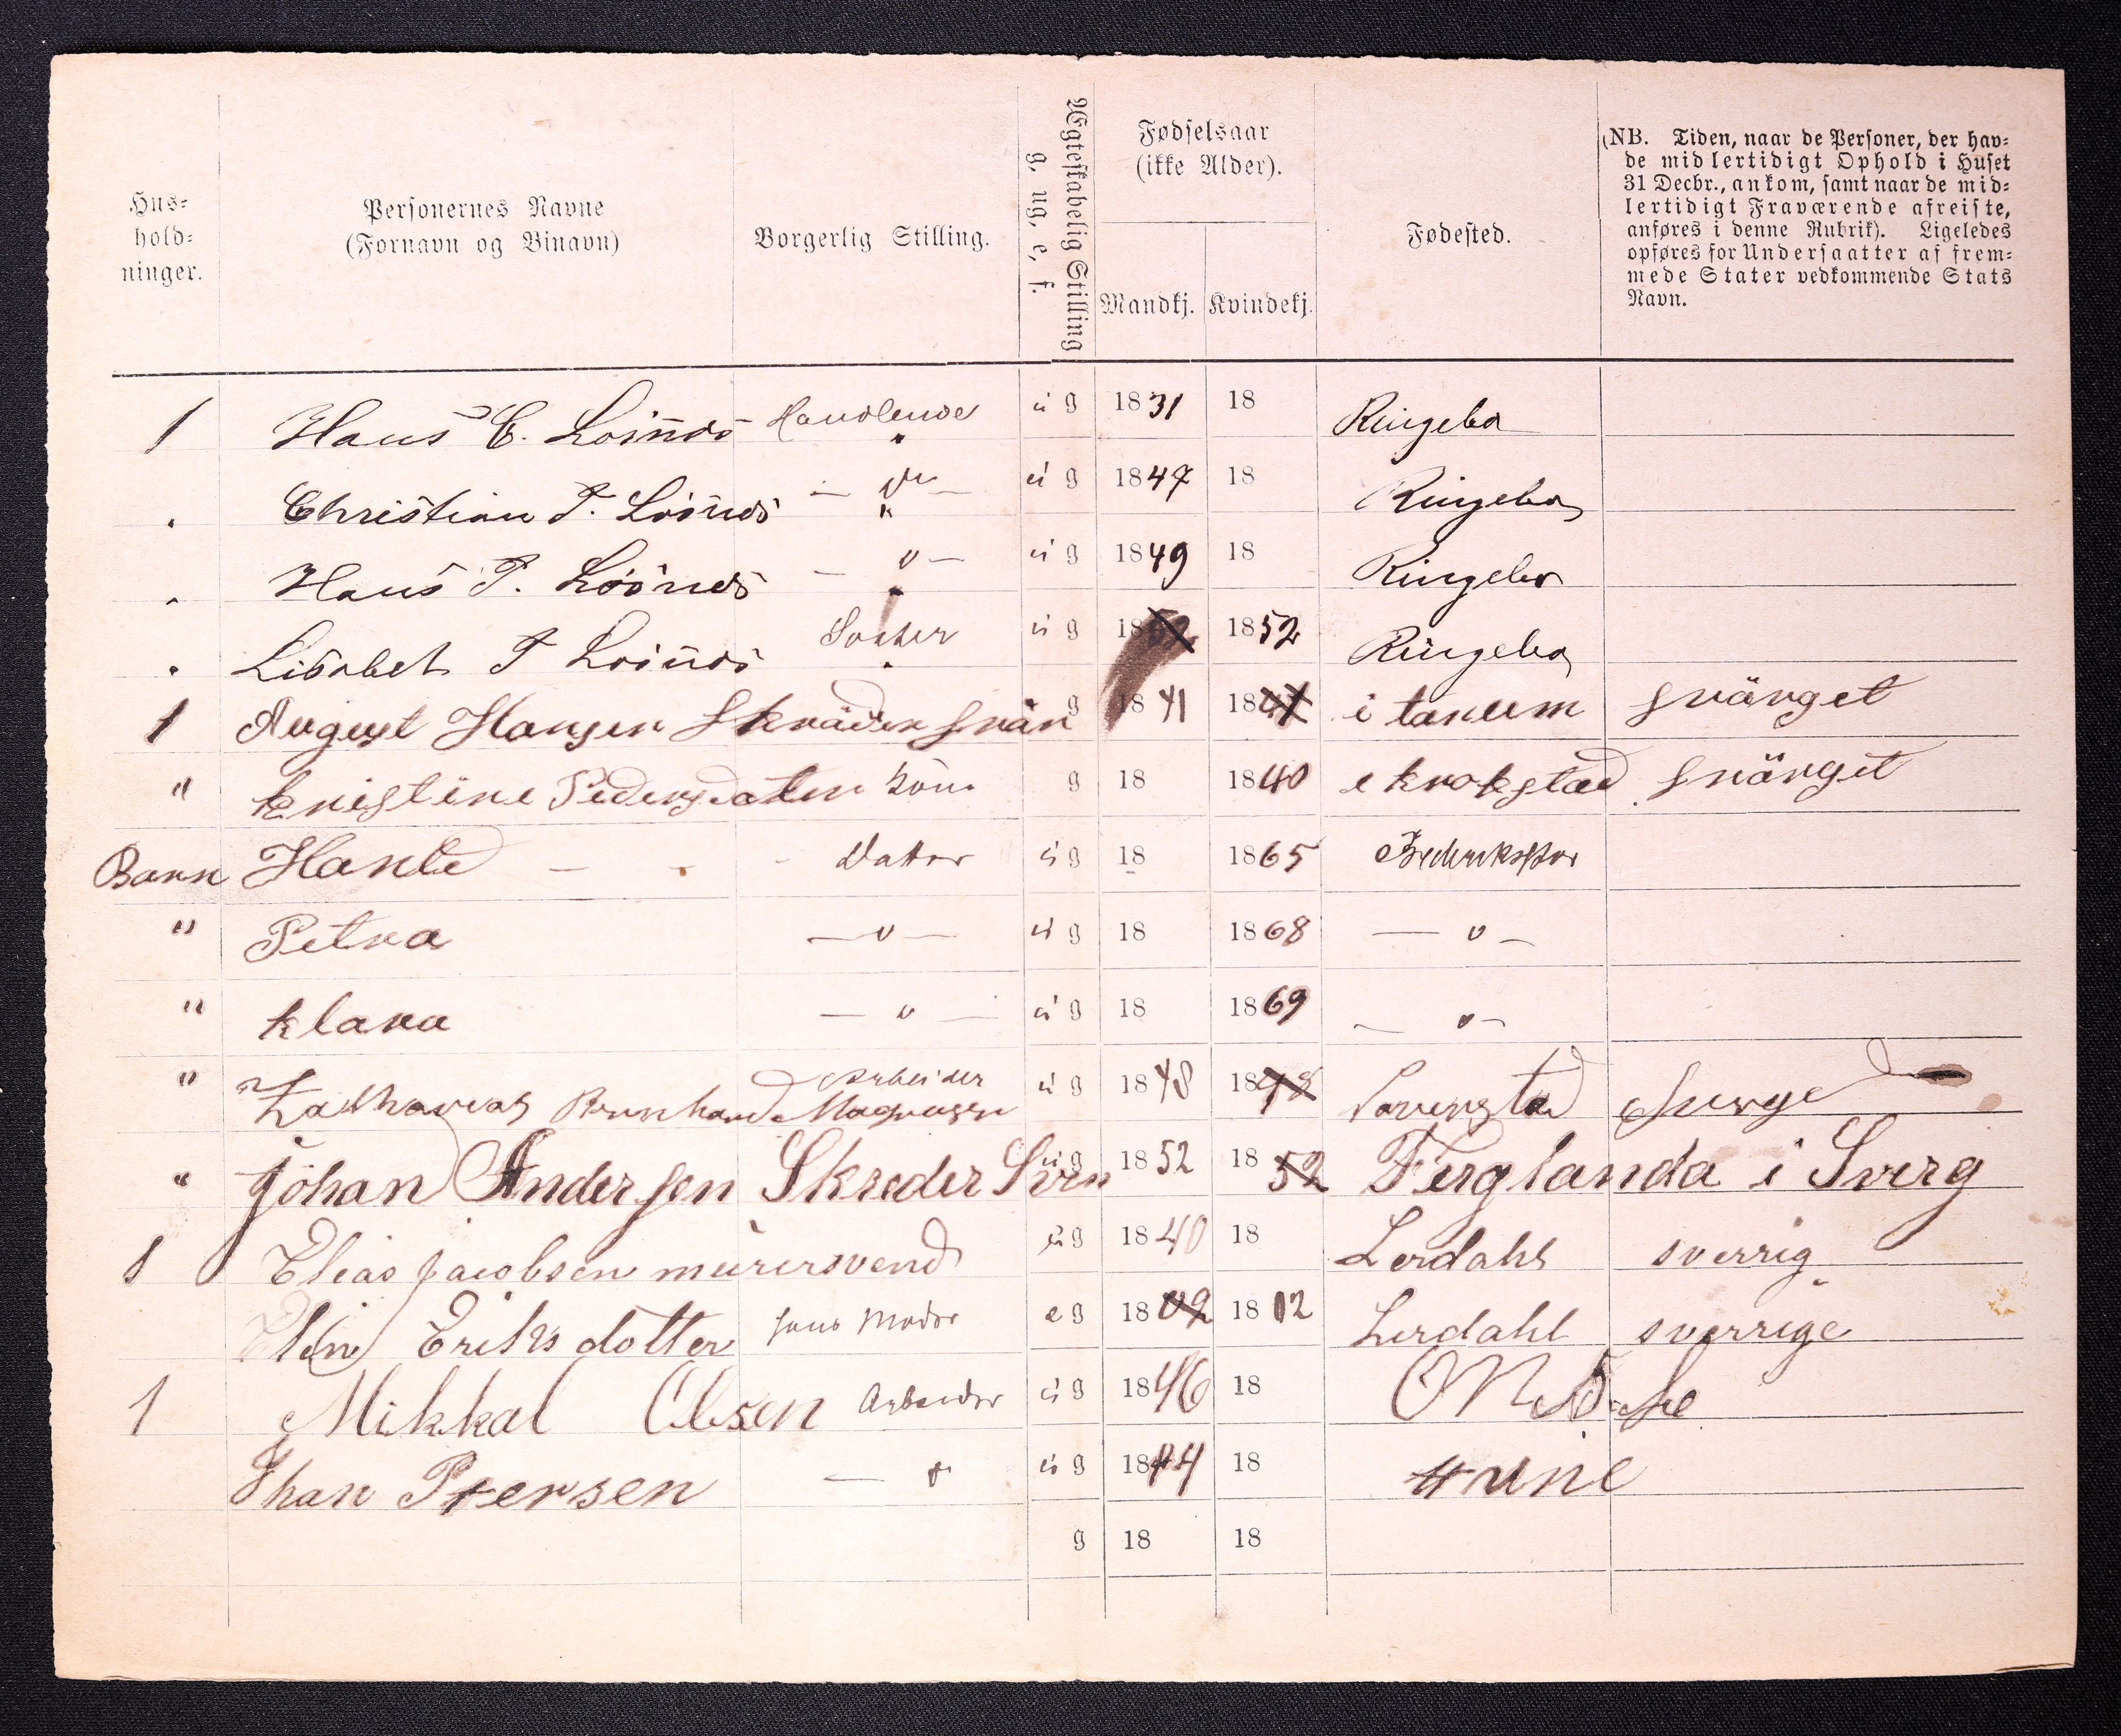 Hus-
hold-
ninger.
Personernes Navne
(Fornavn og Binavn)
Borgerlig Stilling.
Ægteskabelig Stilling
g, ug, e, f.
Fødselsaar
(ikke Alder).
Mandkj. Kvindekj.
Fødested.
(NB. Tiden, naar de Personer, der hav-
de midlertidigt Ophold i Huset
31 Decbr., ankom, samt naar de mid-
lertidigt Fraværende afreiste,
anføres i denne Rubrik). Ligeledes
opføres for Undersaatter af frem-
mede Stater vedkommende Stats
Navn.
1 Hans C. Löönes Handlende ug 1831 18 Ringebo
" Christian P. Löönes — " — ug 1847 18 Ringebo
" Hans P. Löönes — " — ug 1849 18 Ringebo
" Lisabet P Löönes Söster ug 18 1852 Ringebo
1 August Hansen Skräder svän g 1841 18 i tanum svärget
" kristine Pedersdatter kone g 18 1840 krokstad svärget
Barn Hanle — Datter ug 18 1865 Fredrikstad
" Petra — " — ug 18 1868 — " —
" klara — " — ug 18 1869 — " —
" Zacharias Bernhard Magnusen Arbeider ug 1848 18
" Johan Andersen Skreder Sven ug 1852 18 Ferglanda i Sverg
1 Elias Jacobsen mürersvend ug 1840 18 Lerdahl sverrig
Elin Eriks dotter hans Moder e g 18 1812 Lerdahl sverrige
1 Mikkal Olsen Arbeider ug 1846 18
Jhan Ptersen — " ug 1844 18
g 18 18